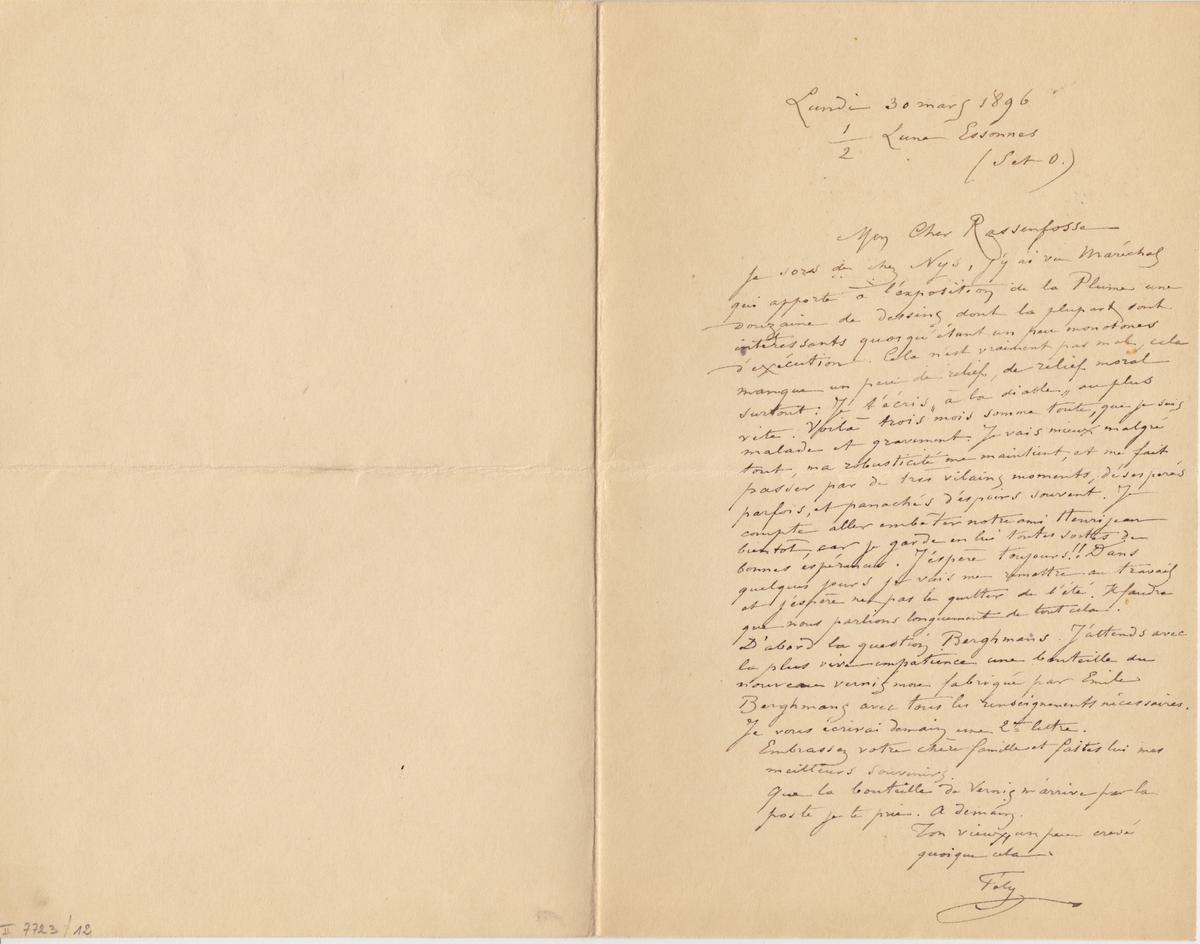 Lundi 30 mars 1896
1/2 Lune Essonnes
(S et O.)
Mon Cher Rassenfosse
Je sors de chez Nys, j'y ai vu Maréchal
qui apporte à l'exposition de la Plume une
douzaine de dessins dont la plupart sont
intéressants quoiqu'étant un peu monotones
d'exécution. Cela n'est vraiment pas mal, cela
manque un peu de relief, de relief moral
surtout : Je t'écris „à la diable„ au plus
vite. Voilà trois mois somme toute, que je suis
malade et gravement. Je vais mieux malgré
tout, ma robusticité me maintient, et me fait
passer par de très vilains moments, désespérés
parfois, et panachés d'espoirs souvent. Je
compte aller embêter notre ami Henrijean
bientôt, car je garde en lui toutes sortes de
bonnes espérances. J'espère toujours!! Dans
quelques jours je vais me remettre au travail
et j'espère ne pas le quitter de l'été. Il faudra
que nous parlions longuement de tout cela.
D'abord la question Berghmans. J'attends avec
la plus vive impatience une bouteille du
nouveau vernis mou fabriqué par Emile
Berghmans avec tous les renseignements nécessaires.
Je vous écrirai demain une 2e lettre.
Embrassez votre chère famille et faites lui mes
meilleurs souvenirs.
Que la bouteille de vernis m'arrive par la
poste je te prie. A demain.
Ton vieux, un peu crevé
quoique cela
Fély
II 7723/12